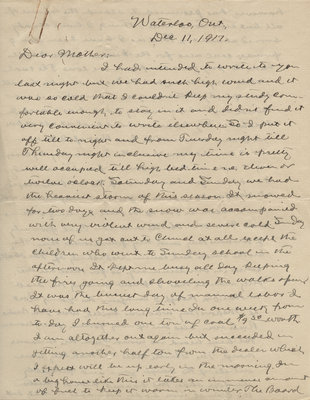 Waterloo, Ont,
Dec 11, 1917.
Dear Mother:
I had intended to write to you
last night but we had such high wind and it
was so cold that I couldn't keep my study com-
fortable enough to stay in it and did not find it
very convenient to write elsewhere so I put it
off till to night and from Tuesday night till
Thursday night inclusive my time is pretty
well occupied till high bed time eleven or
twelve oclock. Saturday and Sunday we had
the heaviest storm of this season. It snowed
for two days and the snow was accompanied
with very violent wind and severe cold Sunday
none of us got out to Church at all except the
children who went to Sunday school in the
afternoon. It kept me busy all day keeping
the fire going and shoveling the walks open
It was the busiest day of manual labor I
have had this long time. In one week from
to-day I burned one ton of coal $9.50 worth
I am altogether out again but succeeded in
getting another half ton from the dealer which
I expect will be up early in the morning. In
a big house like this it takes an immense amount
of fuel to keep it warm in winter. The Board